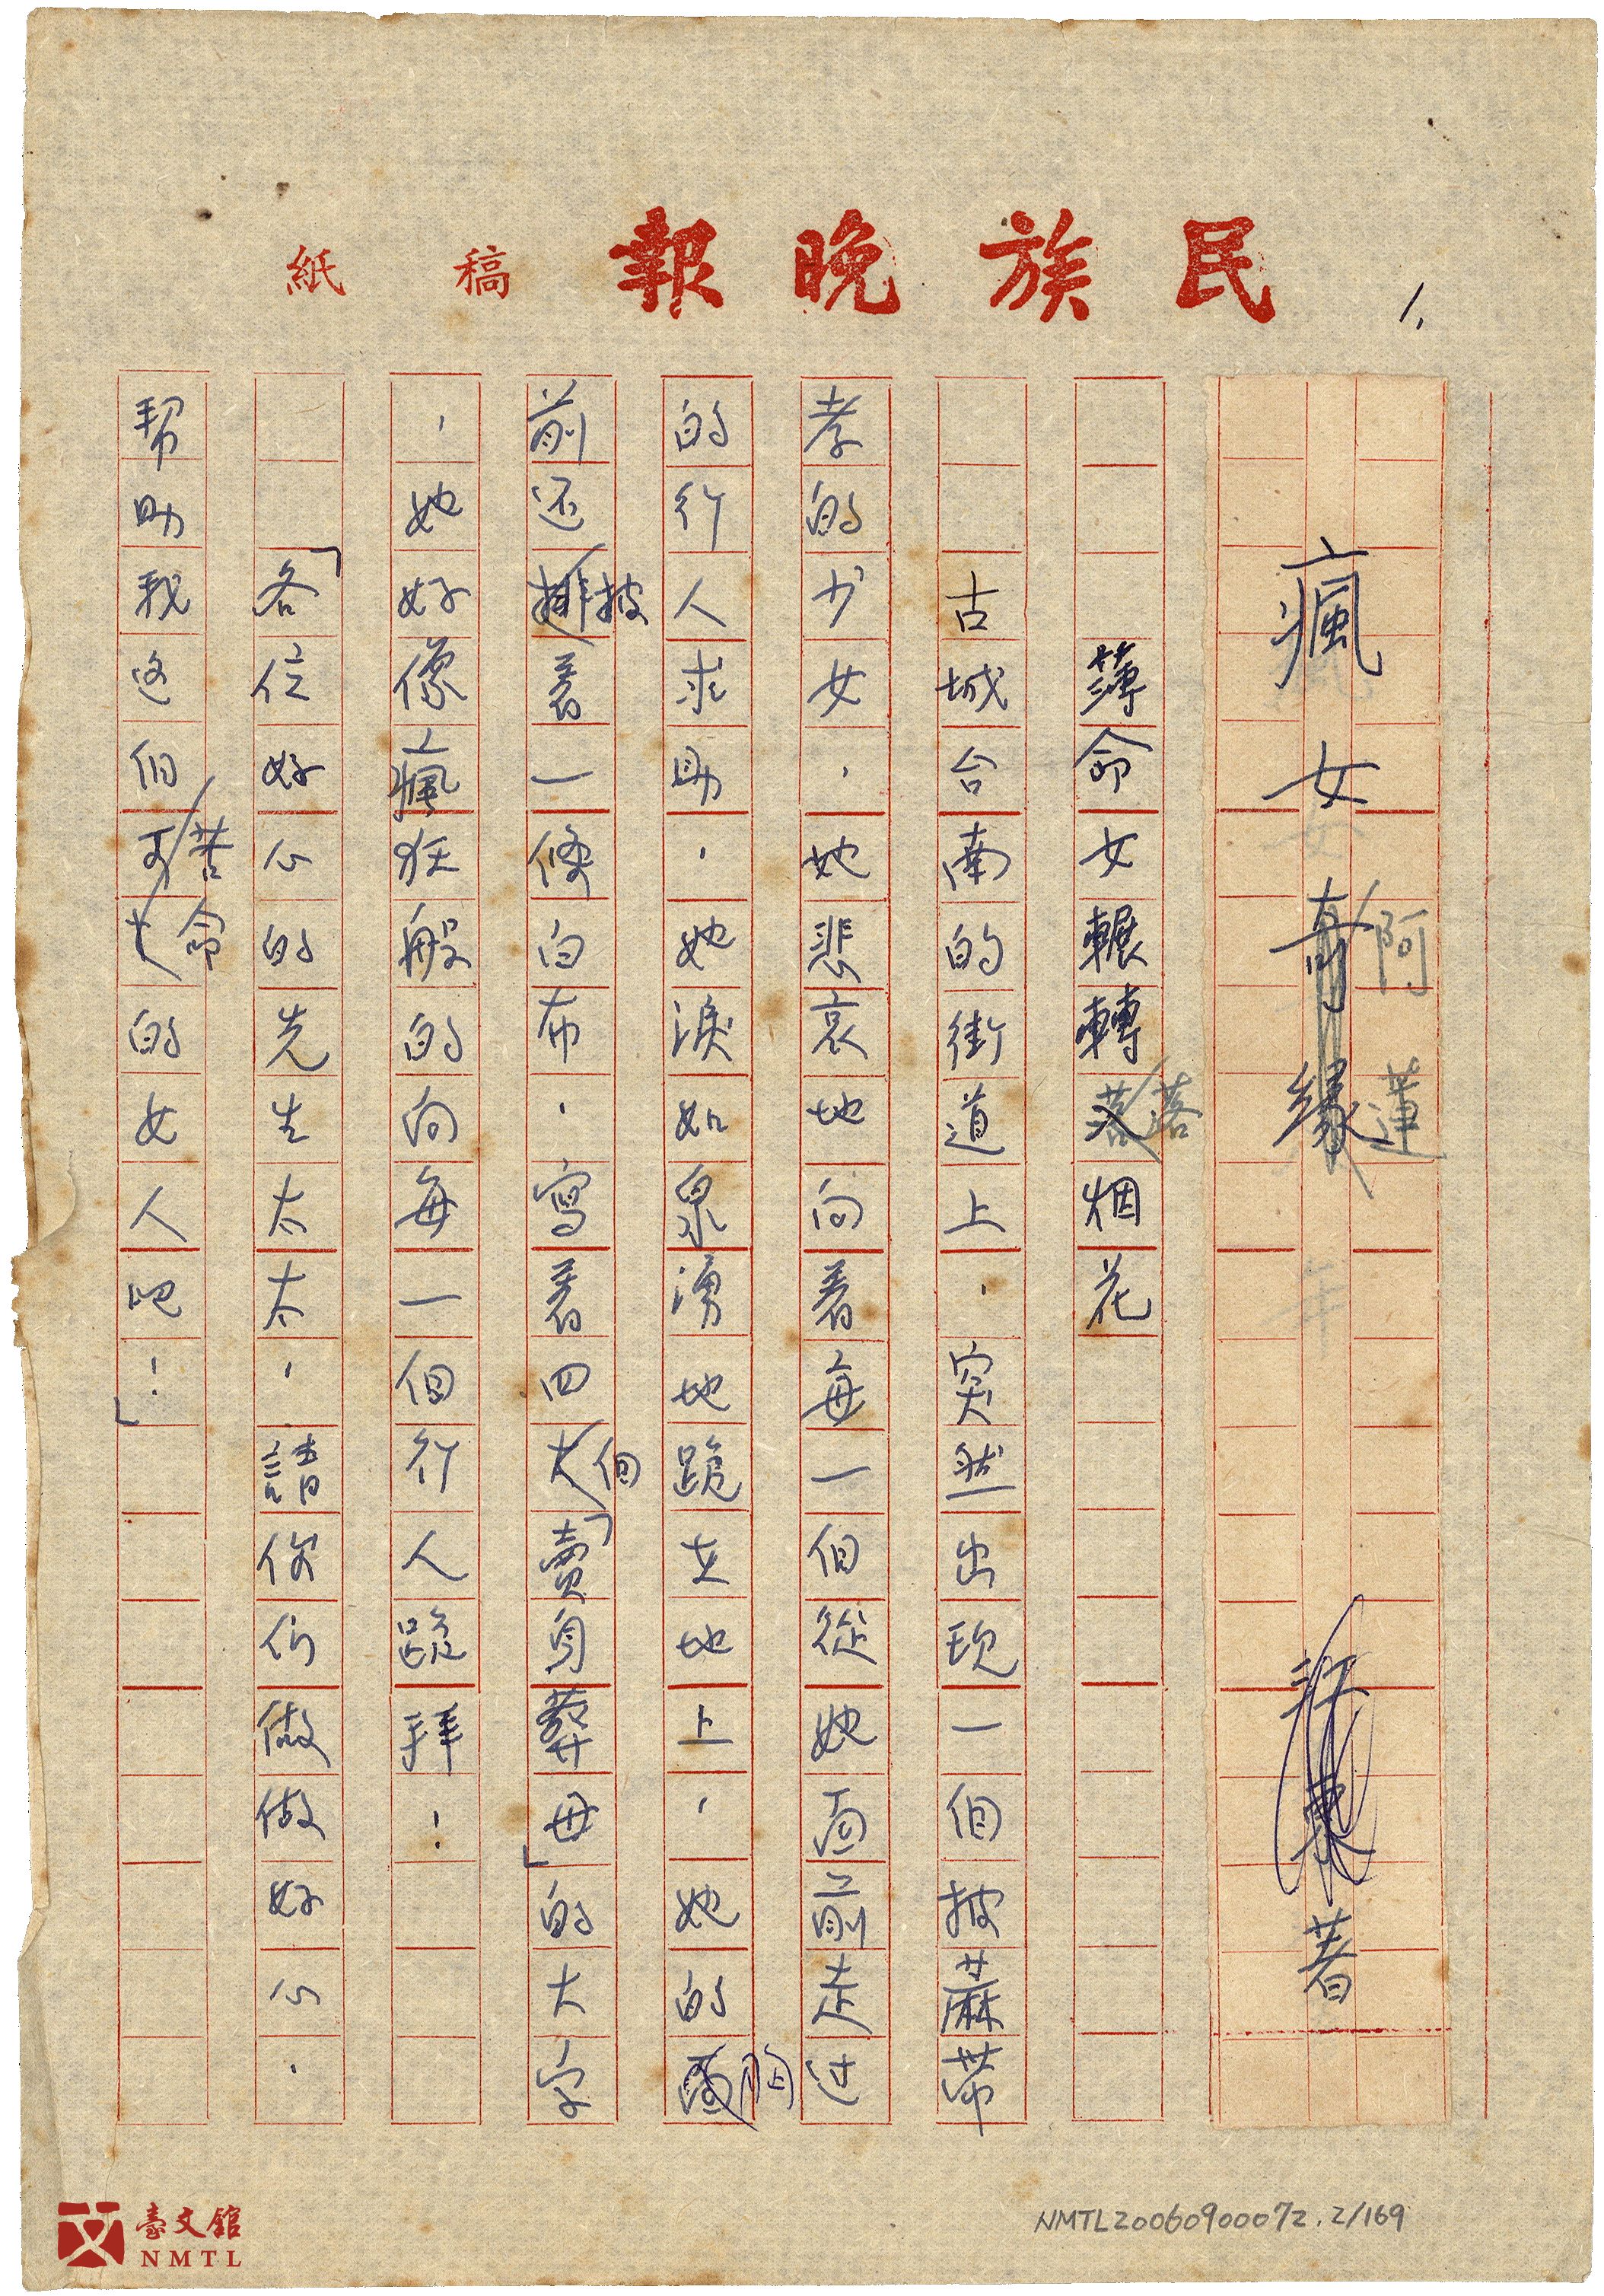 民族晚報 稿紙
1.
瘋女奇緣
阿蓮
著
薄命女輾轉落烟花
落
古城台南的街道上,突然出現一個披蔴帶
孝的少女,她悲哀地向着每一個從她面前走过
的行人求助,她淚如泉湧地跪在地上,她的
胸
前还掛着一條白布,寫着四大「賣身葬母」的大字
披
個
,她好像瘋狂般的向每一個行人跪拜:
「各位好心的先生太太,請你们做做好心,
帮助我这個可的女人吧!」
苦命
臺文館
NMTL
NMTL20060900072.2/169